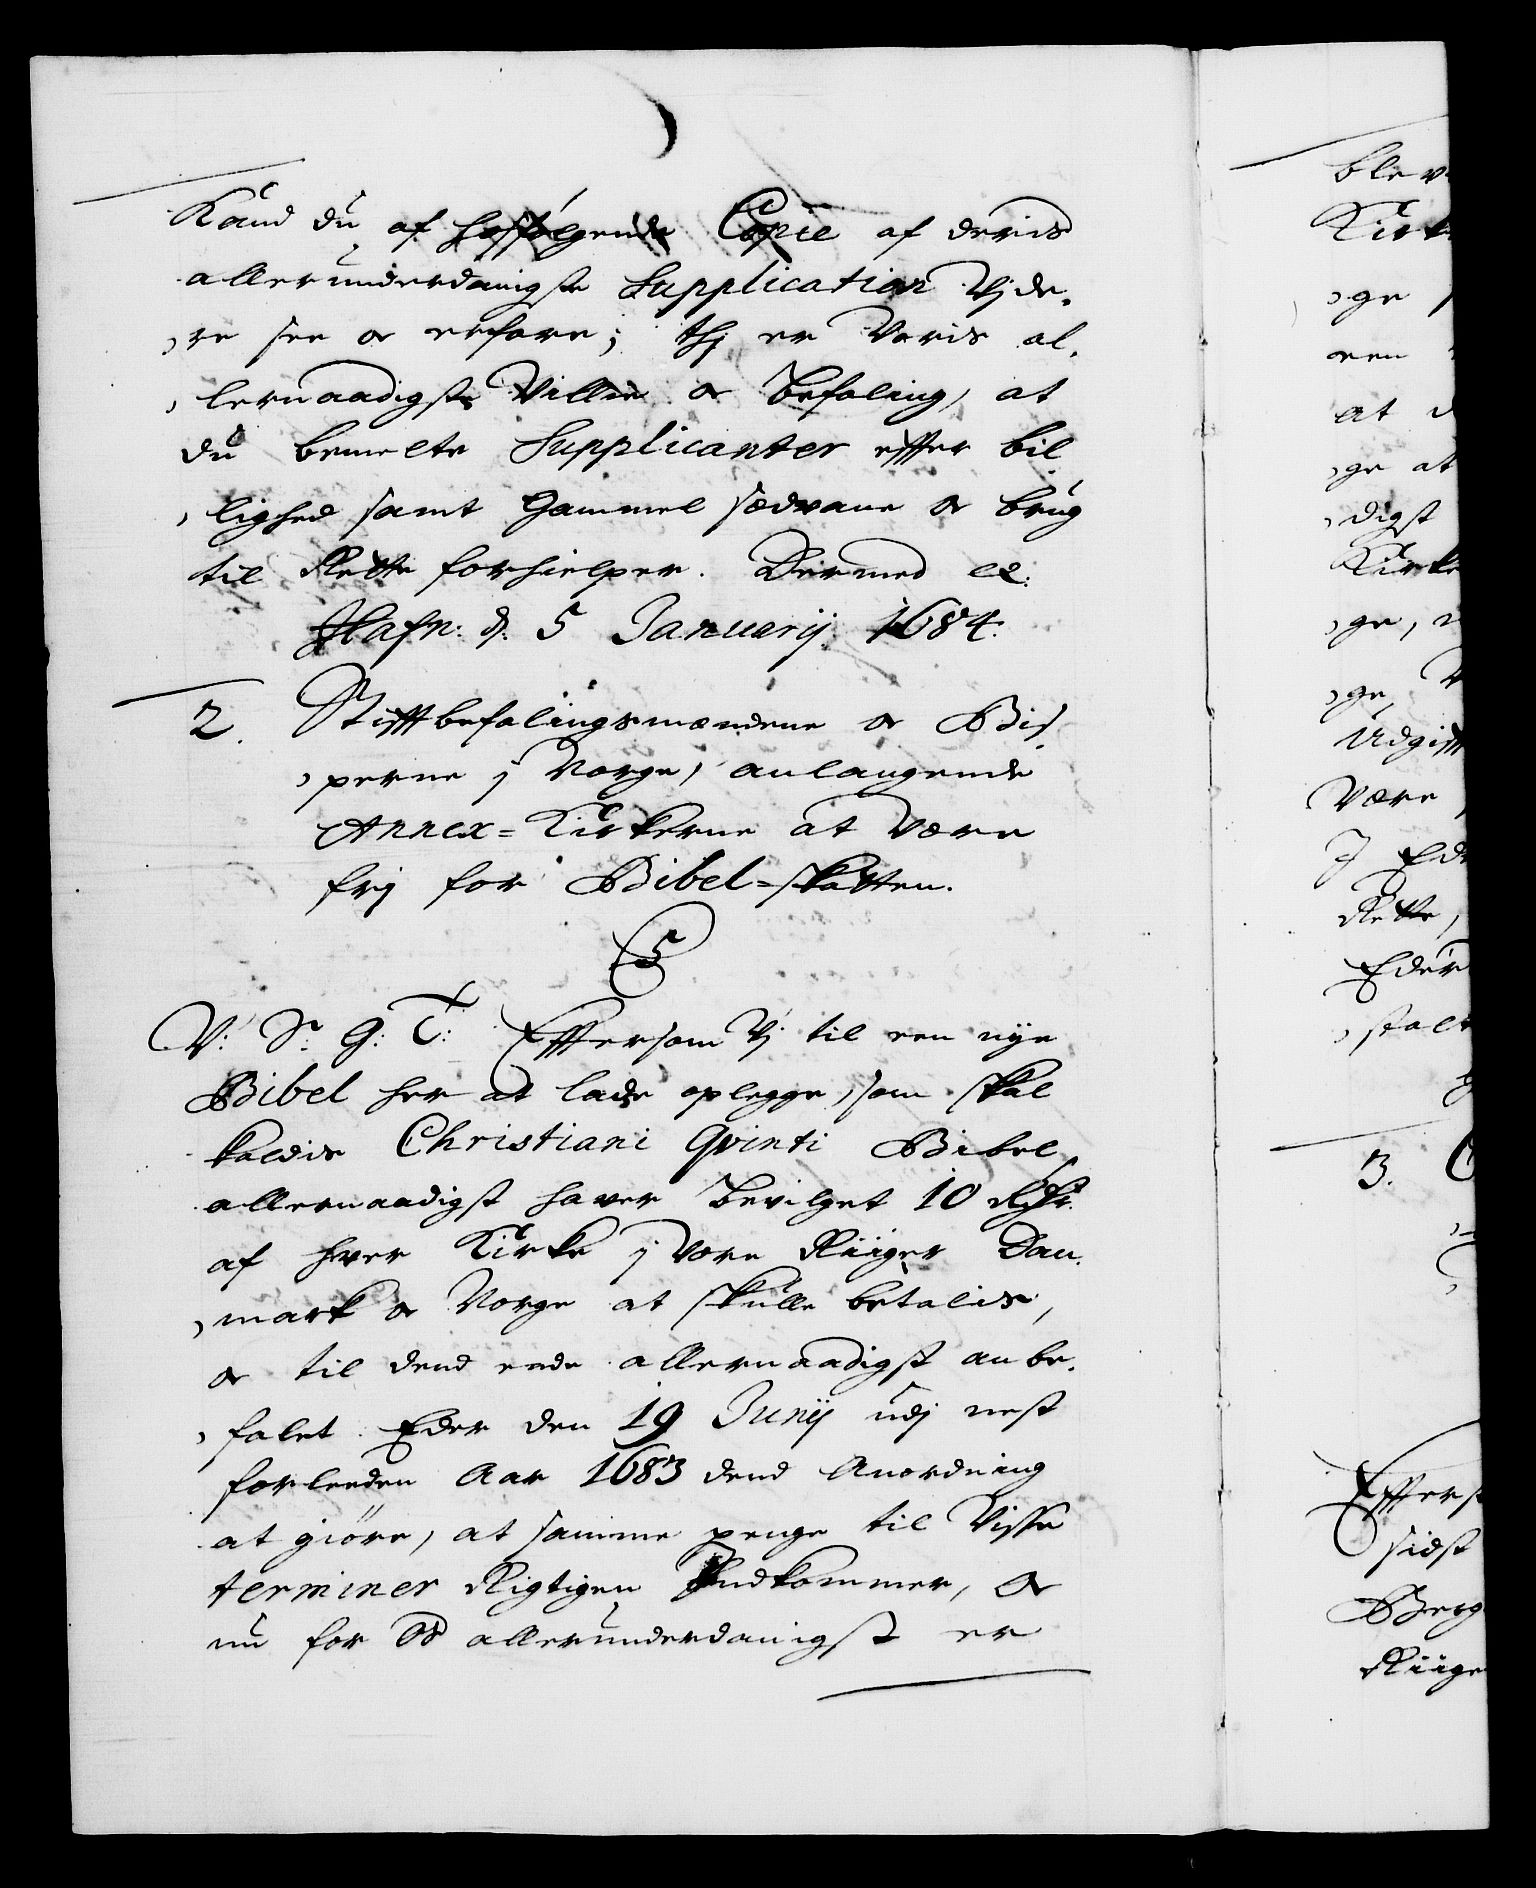 Kand du af hosfølgende Copie af deris
allerunderdanigste Supplication Vjde-
re see og erfare; thj er Voris al-
lernaadigste Villie og Befaling, at
du bemelte Supplicanter effter bil
lighed samt gammel sædvane og brug
til Rette forhielper. Dermed etc:
Hafn: d. 5 Januarij 1684.
2. Stifftbefalingsmændene og Bis-
perne j Norge, anlangende
Annex-Kirkerne at være
frj for Bibel-skatten.
C5
V: S: G: T: Efftersom Vj til een nye
Bibel her at lade oplegge, som skal
kaldis Christiani Qvinti Bibel,
allernaadigst haver bevilget 10 Rdr.
af hver Kirke j vore Riiger Dan-
mark og Norge at skulle betalis,
og til dend ende allernaadigst anbe-
falet Eder den 19 Junij udj nest
forleeden Aar 1683 dend Anordning
at giøre, at samme penge til Visse
terminer Rigtigen indkommer, og
nu for Os allerunderdanigst er
blev
Kirk
ge
een
at d
ge at
digst
Kirke
ge,
ge,
Udgifft
Være
J Ede
Rette,
Eder
stalt
3.
Effters
sidst
Berg
Riige